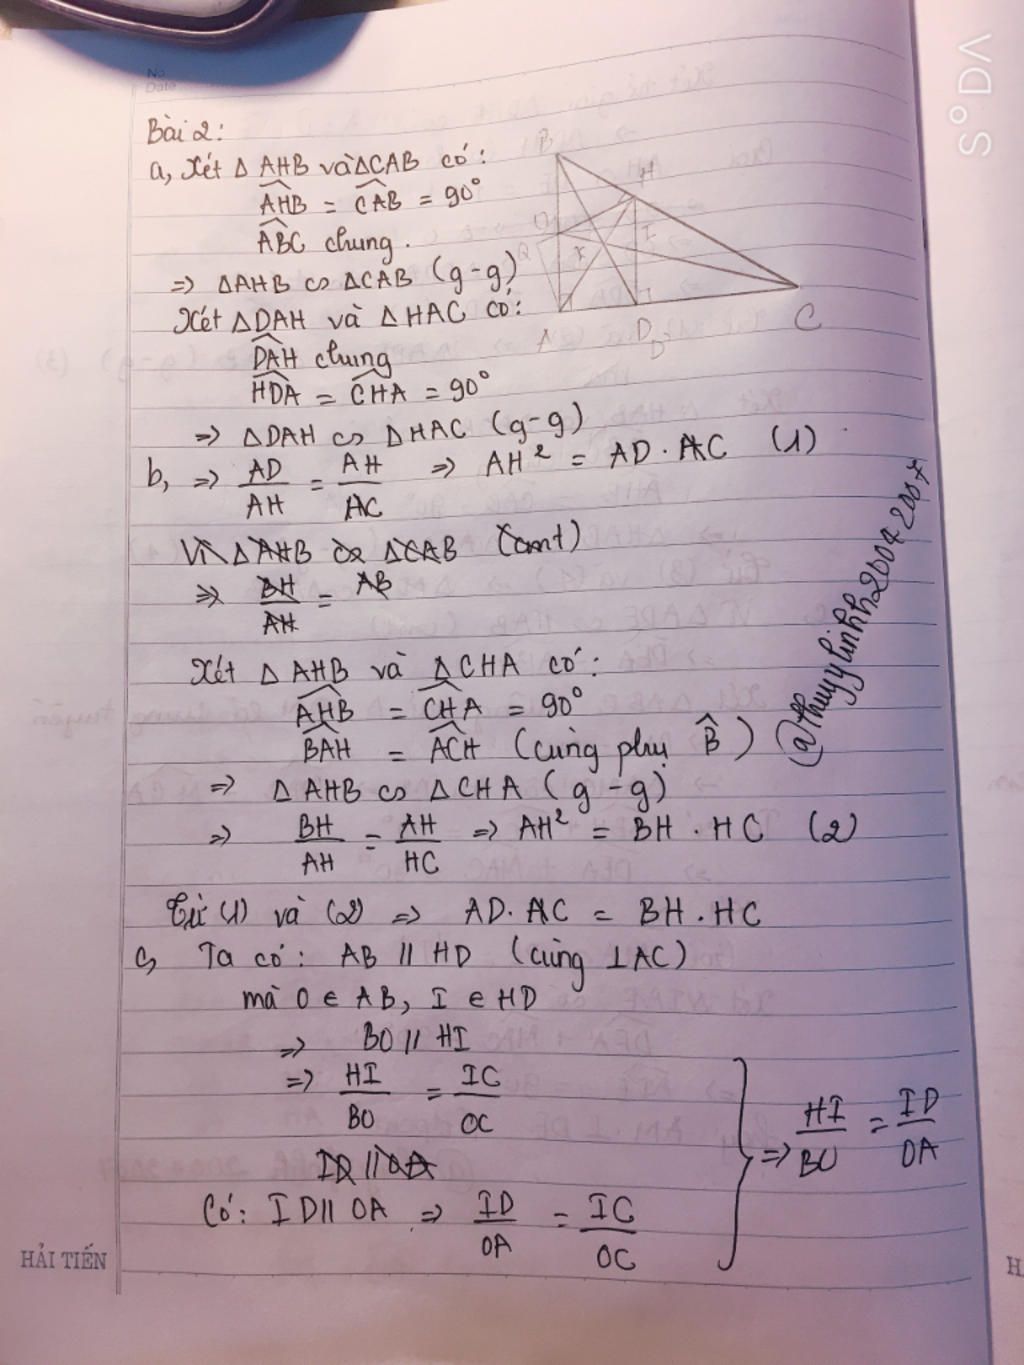 No.
Date
SODA
Bài 2:
a, Xét Δ AHB và ΔCAB có:
AHB = CAB = 90°
ABC chung.
=> ΔAHB ∽ ΔCAB (g-g)
Xét ΔDAH và ΔHAC có:
DAH chung
HDA = CHA = 90°
=> ΔDAH ∽ ΔHAC (g-g)
b, => AD/AH = AH/AC => AH² = AD . AC (1)
Vì ΔAHB ∽ ΔCAB (cmt)
=> BH/AH = AB
Xét Δ AHB và ΔCHA có:
AHB = CHA = 90°
BAH = ACH (cùng phụ B̂)
=> Δ AHB ∽ ΔCHA (g-g)
=> BH/AH = AH/HC => AH² = BH . HC (2)
Từ (1) và (2) => AD. AC = BH . HC
c, Ta có: AB // HD (cùng ⊥AC)
mà O ∈ AB, I ∈ HD
=> BO // HI
=> HI/BO = IC/OC
ID // OA
Có: ID // OA => ID/OA = IC/OC
=> HI/BO = ID/OA
B
H
O
Q
K
I
A
D
D
C
@thuyylinhh20042007
HẢI TIẾN
H